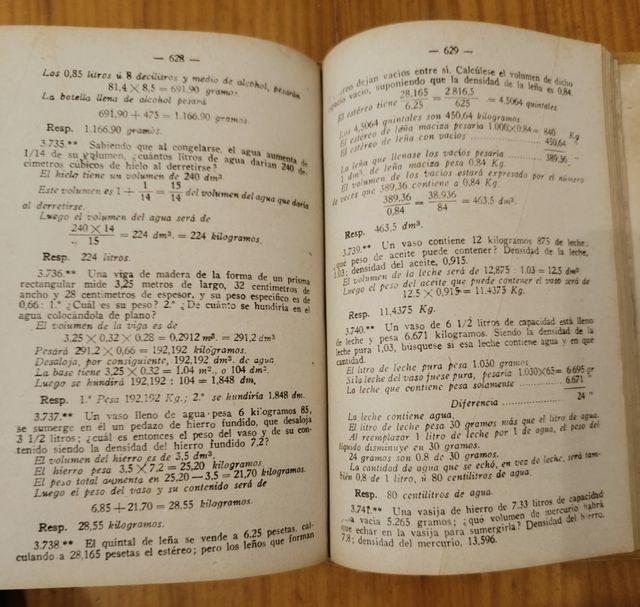 — 628 —
Los 0,85 litros ú 8 decilitros y medio de alcohol, pesarán
81,4 × 8,5 = 691,90 gramos.
La botella llena de alcohol pesará
691,90 + 475 = 1.166,90 gramos.
Resp. 1.166,90 gramos.
3.735.** Sabiendo que al congelarse, el agua aumenta de
1/14 de su volumen, ¿cuántos litros de agua darían 240 de-
címetros cúbicos de hielo al derretirse?
El hielo tiene un volumen de 240 dm³.
Este volumen es 1 + 1/14 = 15/14 del volumen del agua que daría
al derretirse.
Luego el volumen del agua será de
240 × 14 / 15 = 224 dm³. = 224 kilogramos.
Resp. 224 litros.
3.736.** Una viga de madera de la forma de un prisma
rectangular mide 3,25 metros de largo, 32 centímetros de
ancho y 28 centímetros de espesor, y su peso específico es de
0,66: 1.º ¿Cuál es su peso? 2.º ¿De cuánto se hundiría en el
agua colocándola de plano?
El volumen de la viga es de
3,25 × 0,32 × 0,28 = 0,2912 m³. = 291,2 dm³
Pesará 291,2 × 0,66 = 192,192 kilogramos.
Desaloja, por consiguiente, 192,192 dm³. de agua.
La base tiene 3,25 × 0,32 = 1,04 m²., o 104 dm².
Luego se hundirá 192,192 : 104 = 1,848 dm.
Resp. 1.º Pesa 192,192 Kg.; 2.º se hundiría 1,848 dm.
3.737.** Un vaso lleno de agua pesa 6 kilogramos 85,
se sumerge en él un pedazo de hierro fundido, que desaloja
3 1/2 litros; ¿cuál es entonces el peso del vaso y de su con-
tenido siendo la densidad del hierro fundido 7,2?
El volumen del hierro es de 3,5 dm³.
El hierro pesa 3,5 × 7,2 = 25,20 kilogramos.
El peso total aumenta en 25,20 — 3,5 = 21,70 kilogramos.
Luego el peso del vaso y su contenido será de
6,85 + 21,70 = 28,55 kilogramos.
Resp. 28,55 kilogramos.
3.738.** El quintal de leña se vende a 6,25 pesetas, cal-
culando a 28,165 pesetas el estéreo; pero los leños que forman
— 629 —
dejan vacíos entre sí. Calcúlese el volumen de dicho
vacío, suponiendo que la densidad de la leña es 0,84.
El estéreo tiene 28,165 / 6,25 = 2 816,5 / 625 = 4,5064 quintales.
Los 4,5064 quintales son 450,64 kilogramos.
El estéreo de leña maciza pesaría 1.000 × 0,84 = 840 Kg
El estéreo de leña con vacíos .......... 450,64 "
La leña que llenase los vacíos pesaría .......... 389,36 "
1 dm³. de leña maciza pesa 0,84 Kg.
El volumen de los vacíos estará expresado por el número
de veces que 389,36 contiene a 0,84 Kg.
389,36 / 0,84 = 38.936 / 84 = 463,5 dm³.
Resp. 463,5 dm³.
3.739.** Un vaso contiene 12 kilogramos 875 de leche;
¿qué peso de aceite puede contener? Densidad de la leche,
1,03; densidad del aceite, 0,915.
El volumen de la leche será de 12,875 : 1,03 = 12,5 dm³
Luego el peso del aceite que puede contener el vaso será de
12,5 × 0,915 = 11,4375 Kg.
Resp. 11,4375 Kg.
3.740.** Un vaso de 6 1/2 litros de capacidad está lleno
de leche y pesa 6.671 kilogramos. Siendo la densidad de la
leche pura 1,03, búsquese si esa leche contiene agua y en qué
cantidad.
El litro de leche pura pesa 1.030 gramos.
Si la leche del vaso fuese pura, pesaría 1.030 × 6,5 = 6.695 gr
La leche que contiene pesa solamente .......... 6.671 "
Diferencia .......... 24 "
La leche contiene agua.
El litro de leche pesa 30 gramos más que el litro de agua.
Al reemplazar 1 litro de leche por 1 de agua, el peso del
líquido disminuye en 30 gramos.
24 gramos son 0,8 de 30 gramos.
La cantidad de agua que se echó, en vez de leche, será tam-
bién 0,8 de 1 litro, ú 80 centilitros de agua.
Resp. 80 centilitros de agua.
3.741.** Una vasija de hierro de 7,33 litros de capacidad
vacía 5.265 gramos; ¿qué volumen de mercurio habrá
que echar en la vasija para sumergirla? Densidad del hierro,
7,8; densidad del mercurio, 13,596.